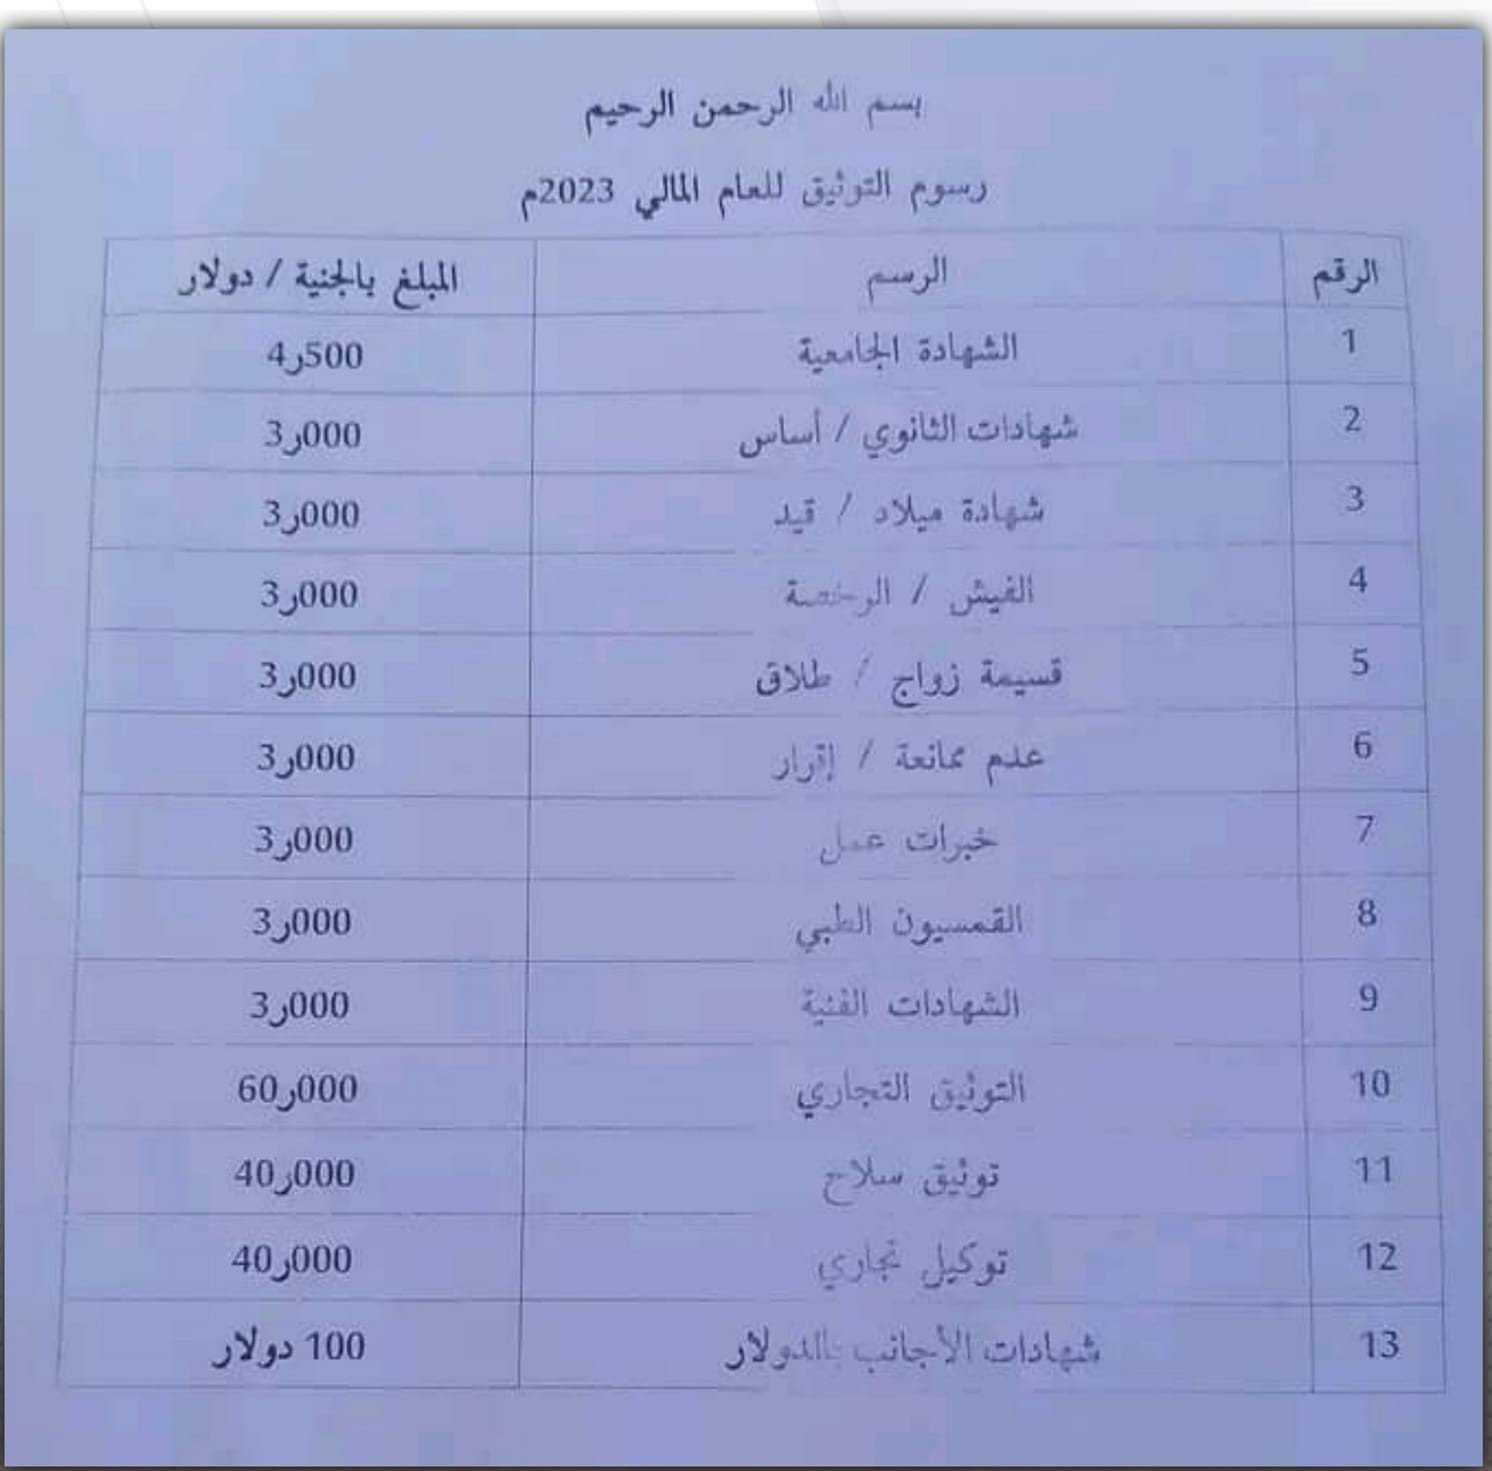 بسم الله الرحمن الرحيم
رسوم التوثيق للعام المالي 2023م
الرقم الرسم المبلغ بالجنية / دولار
1 الشهادة الجامعية 4ر500
2 شهادات الثانوي / أساس 3ر000
3 شهادة ميلاد / قيد 3ر000
4 الفيش / الرخصة 3ر000
5 قسيمة زواج / طلاق 3ر000
6 عدم ممانعة / إقرار 3ر000
7 خبرات عمل 3ر000
8 القمسيون الطبي 3ر000
9 الشهادات الفنية 3ر000
10 التوثيق التجاري 60ر000
11 توثيق سلاح 40ر000
12 توكيل تجاري 40ر000
13 شهادات الأجانب بالدولار 100 دولار